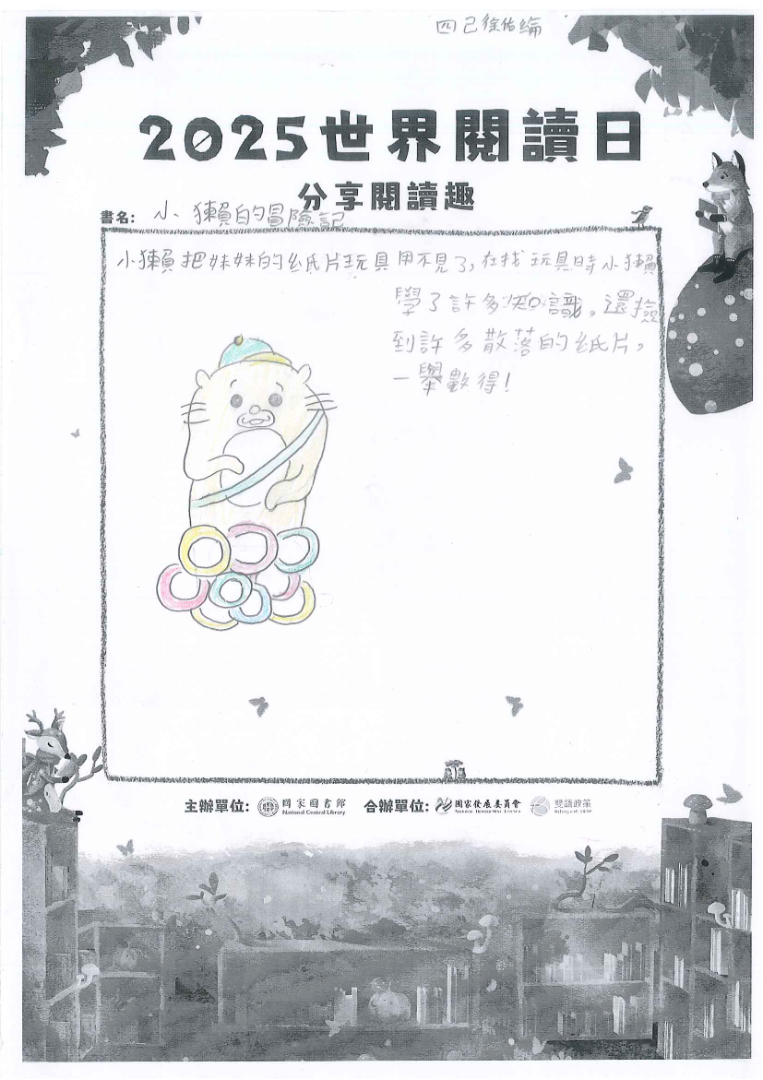 四己徐佑綸
2025世界閱讀日
分享閱讀趣
書名: 小獺的冒險記
小獺把妹妹的紙片玩具用不見了,在找玩具時小獺
學了許多知識,還撿
到許多散落的紙片,
一舉數得!
主辦單位: 國家圖書館 National Central Library 合辦單位: 國家發展委員會 National Development Council 雙語政策